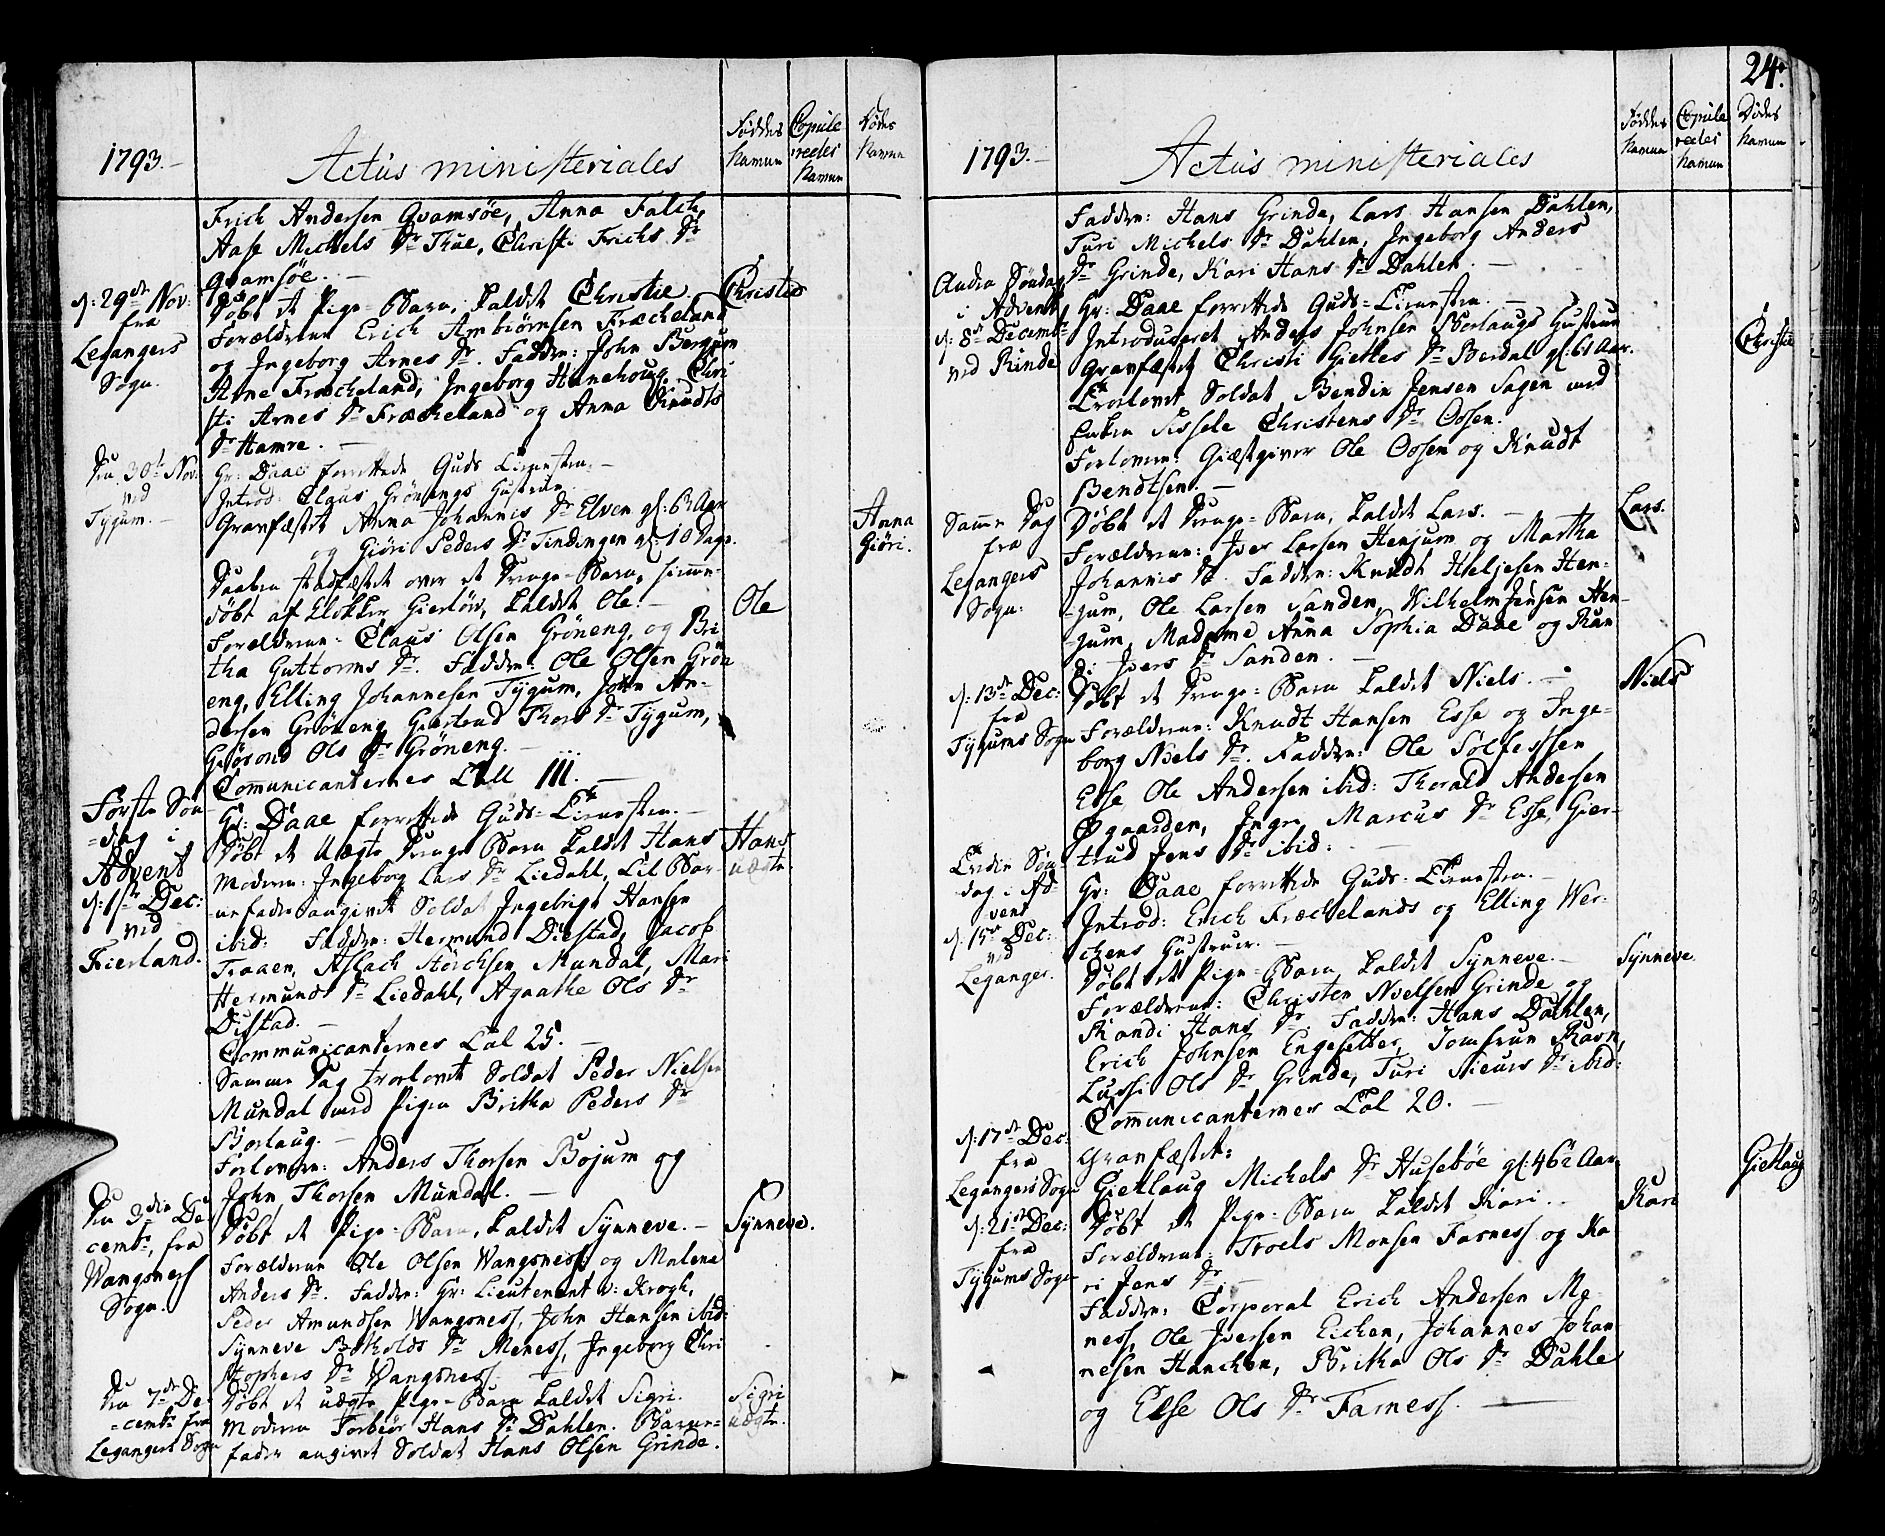 1793.
Actus ministeriales
Føddes Namnn
Copule reedes Namnn
Dødes Namnn
Frich Andersen Qvamsøe, Anna Falch,
Aase Michels Dr Thue, Christi Frichs Dr
Qvamsøe.
d: 29de Nov:
fra
Legangers
Sogn.
Døbt et Pige-Barn, kaldet Christie
Christie
Forældrene Erich Ambiörnsen Fræcheland
og Ingeborg Arnes Dr. Fadderne: John Bergum
Arne Fræcheland, Ingeborg Hanehoug, Chri
sti Arnes Dr Fræcheland og Anna Knudts
Dr Hamre.
Den 30te Nov:
ved
Tygum.
Hr: Daae forrettede Guds Tienesten.
Introd: Claus Grönengs Hustrue
Gravfæstet Anna Johannis Dr Elven gl: 6 Aar
og Giöri Peders Dr Tindingen gl: 10 Dage.
Anna
Giöri.
Daaben stadfæstet over et Drenge-Barn, hiemme-
döbt af Klokker Gierlöw, kaldet Ole.
Ole
Forældrene: Claus Olsen Gröneng, og Bri
tha Guttorms Dr. Fadderne: Ole Olsen Grön
eng, Elling Johannesen Tygum, John An-
dersen Gröneng Giertrud Thors Dr Tygum,
Giörond Ols Dr Gröneng.
Communicanternes Tall 111.
Første Søn
-dag i
Advent
d: 1ste Dec:
ved
Fierland.
Hr: Daae forrettede Guds-Tienesten.
Döbt et Uægte Drenge Barn kaldet Hans
Hans
uægte.
Moderen: Ingeborg Lars Dr Liedahl, til Bar-
nefader angivet Soldat Ingebrigt Hansen
ibid: Fadderne: Hermund Distad, Jacob
Traaen, Aslach Störchsen Mundal, Mari
Hermunds Dr Liedahl, Agaathe Ols Dr
Distad.
Communicanternes Tal 25.
Samme Dag trolovet Soldat Peder Nielsen
Mundal med Pigen Britha Peders Dr
Borlaug.
Forloverne: Anders Thorsen Bojum og
John Thorsen Mundal.
Den 3die De
cembr, fra
Wangsness
Sogn.
Döbt et Pige-Barn, kaldet Synneve.
Synneve.
Forældrene Ole Olsen Wangsness og Malena
Anders Dr. Fadderne: Hr: Lieutenant v: Krogh,
Peder Amundsen Wangsness, John Hansen ibid:
Synneve Botholds Dr Meness, Ingeborg Chri
stophers Dr Wangsness.
Den 7de De-
-cembr fra
Legangers Sogn
Döbt et uægte Pige-Barn kaldet Sigri.
Sigri
uægte.
Moderen Torbiör Hans Dr Dahlen. Barne-
fader angivet Soldat Hans Olsen Grinde.
24.
1793.
Actus ministeriales
Føddes Namnn
Copule reedes Namnn
Dødes Namnn
Fadderne: Hans Grinde, Lars Hansen Dahlen,
Turi Michels Dr Dahlen, Ingeborg Anders
Dr Grinde, Kari Hans Dr Dahlen.
Anden Søndag
i Advent
d: 8de Decembr
ved Rinde
Hr: Daae forrettede Guds-Tienesten.
Introduceret Anders Johnsen Borlaugs Hustrue
Gravfæstet Christi Gietles Dr Berdal gl: 61 Aar.
Christie
Trolovet Soldat Bendix Jensen Sagen med
Enken Sissele Christens Dr Ossen.
Forloverne: Giæstgiver Ole Ossen og Knudt
Bendtsen.
Samme Dag
fra
Legangers
Sogn:
Döbt et Drenge-Barn, kaldet Lars.
Lars.
Forældrene: Iver Larsen Henjum og Martha
Johannis Dr. Fadderne: Knudt Heljesen Hen-
-jum, Ole Larsen Sanden, Wilhelm Jensen Hen-
-jum, Madame Anna Sophia Daae og Ran
di Ivers Dr Sanden.
d: 13de Dec:
fra
Tygums Sogn
Döbt et Drenge-Barn kaldet Niels.
Niels
Forældrene: Knudt Hansen Esse og Inge-
borg Niels Dr. Fadderne: Ole Sölfessen
Esse Ole Andersen ibid: Thorald Andersen
Øgaarden, Ingri Marcus Dr Esse, Gier-
trud Jens Dr ibid:
Tredie Søn-
dag i Ad-
vent
d: 15de Dec:
ved
Leganger.
Hr: Daae forrettede Guds-Tienesten.
Introd: Erich Fræchelands og Elling Wer-
chens Hustruer.
Döbt et Pige-Barn kaldet Synneve.
Synneve.
Forældrene: Christen Nielsen Grinde og
Randi Hans Dr Fadderne: Hans Dahlen,
Erich Johnsen Engesetter, Jomfrue Ravn,
Lussi Ols Dr Grinde, Turi Siewrs Dr ibid:
Communicanternes Tal 20.
d: 17de Dec:
fra
Legangers Sogn
Gravfæstet:
Gietlaug Michels Dr Husebøe gl: 46½ Aar
Gietlaug
d: 21de Dec:
fra
Tygums Sogn
Döbt et Pige-Barn kaldet Kari.
Kari
Forældrene: Troels Monsen Farness og Ka
ri Jens Dr.
Fadderne: Corporal Erich Andersen Me-
ness, Ole Iversen Eichen, Johannes Johan
nesen Hanchen, Britha Ols Dr Dahle
og Else Ols Dr Farness.